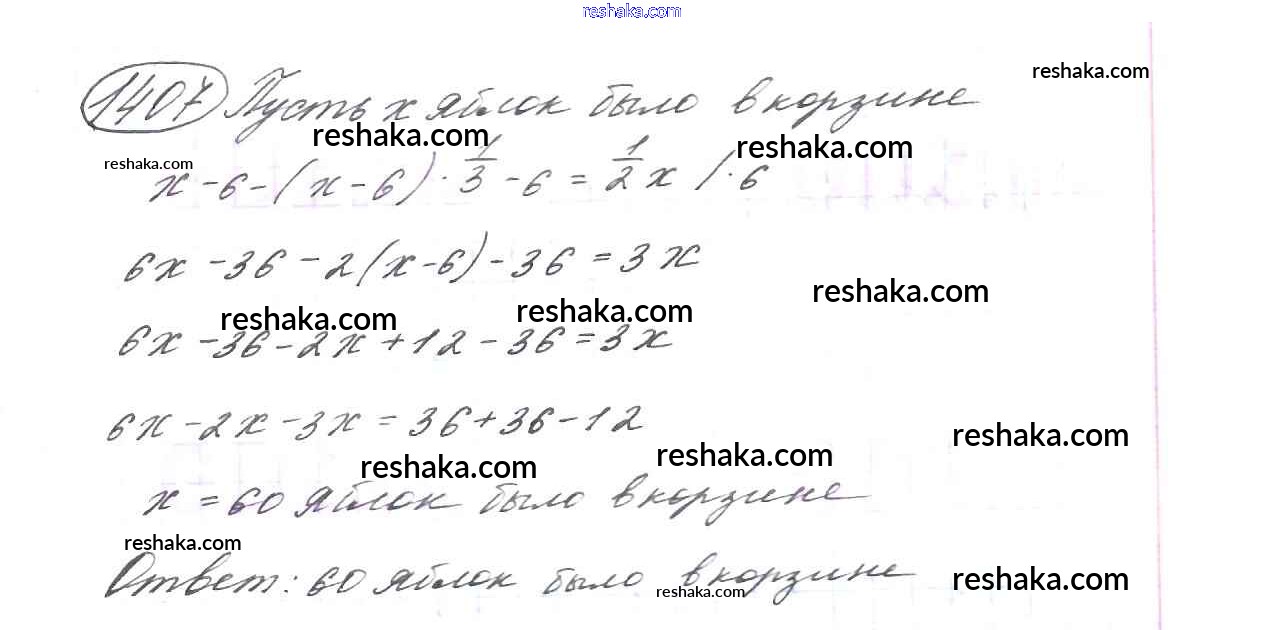 reshaka.com
reshaka.com
1407 Пусть x яблок было в корзине
reshaka.com
reshaka.com
reshaka.com
x - 6 - (x - 6) · 1/3 - 6 = 1/2 x / · 6
6x - 36 - 2(x - 6) - 36 = 3x
reshaka.com
reshaka.com
reshaka.com
6x - 36 - 2x + 12 - 36 = 3x
6x - 2x - 3x = 36 + 36 - 12
reshaka.com
reshaka.com
reshaka.com
x = 60 яблок было в корзине
reshaka.com
Ответ: 60 яблок было в корзине
reshaka.com
reshaka.com